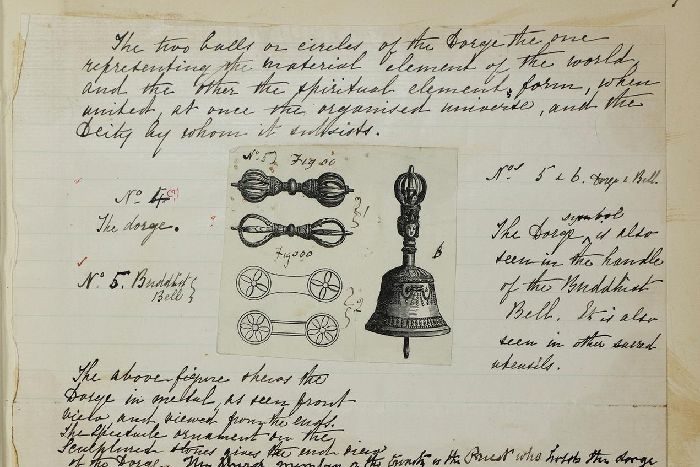 The two balls or circles of the Dorge the one
representing the material element of the world,
and the other the spiritual element, form, when
united, at once the organised universe, and the
Deity by whom it subsists.
No. 5 Fig 00
Fig 000
1
2
B
No 4
The dorge.
No 5. Buddhist
Bell
Nos 5 & 6. Dorge & Bell.
The Dorge symbol is also
seen in the handle
of the Buddhist
Bell. It is also
seen in other sacred
utensils.
The above figure shews the
Dorge in metal, as seen front
view and viewed from the ends.
The Spectacle ornament on the
Sculptured stones gives the end view
of the Dorge. The is the Priest who holds the dorge